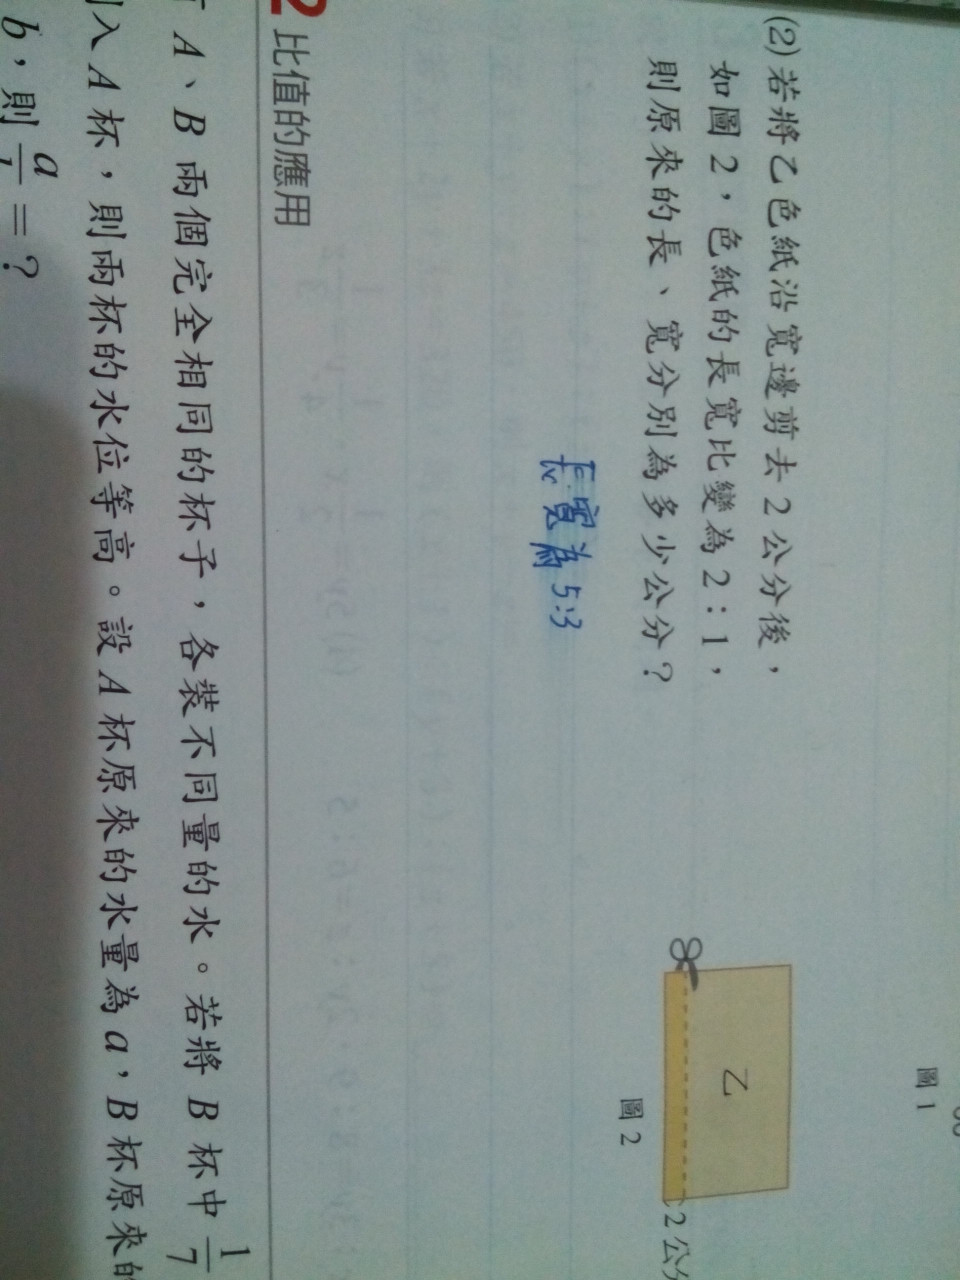 圖 1
(2) 若將乙色紙沿寬邊剪去 2 公分後，
如圖 2，色紙的長寬比變為 2：1，
則原來的長、寬分別為多少公分？
乙
2 公
圖 2
長寬為 5:3
2 比值的應用
A、B 兩個完全相同的杯子，各裝不同量的水。若將 B 杯中 1/7
入 A 杯，則兩杯的水位等高。設 A 杯原來的水量為 a，B 杯原來的
b，則 a/ = ？